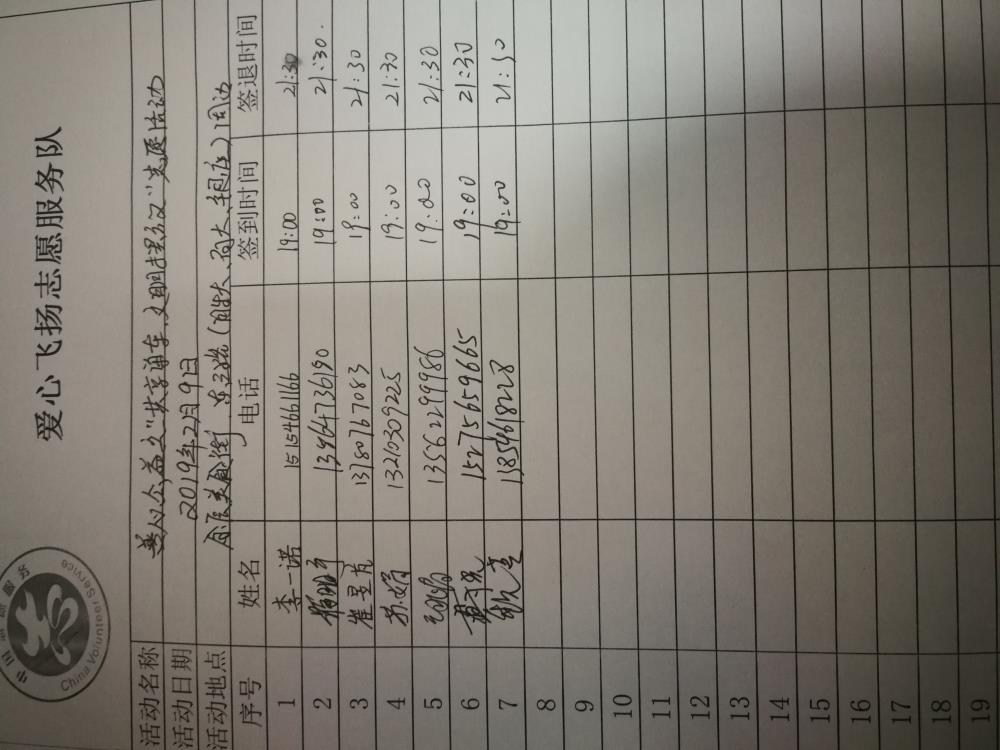 爱心飞扬志愿服务队
China Volunteer Service
活动名称 善心公益之"共享单车,文明摆放"志愿活动
活动日期 2019年2月9日
活动地点 周边
序号 姓名 电话 签到时间 签退时间
1 李一诺 15154661166 19:00 21:30
2 13964736190 19:00 21:30.
3 崔昱芃 13780767083 19:00 21:30
4 苏娟 13210309225 19:00 21:30
5 13562299986 19:00 21:30
6 15275659665 19:00 21:30
7 13854618228 19:00 21:30
8
9
10
11
12
13
14
15
16
17
18
19